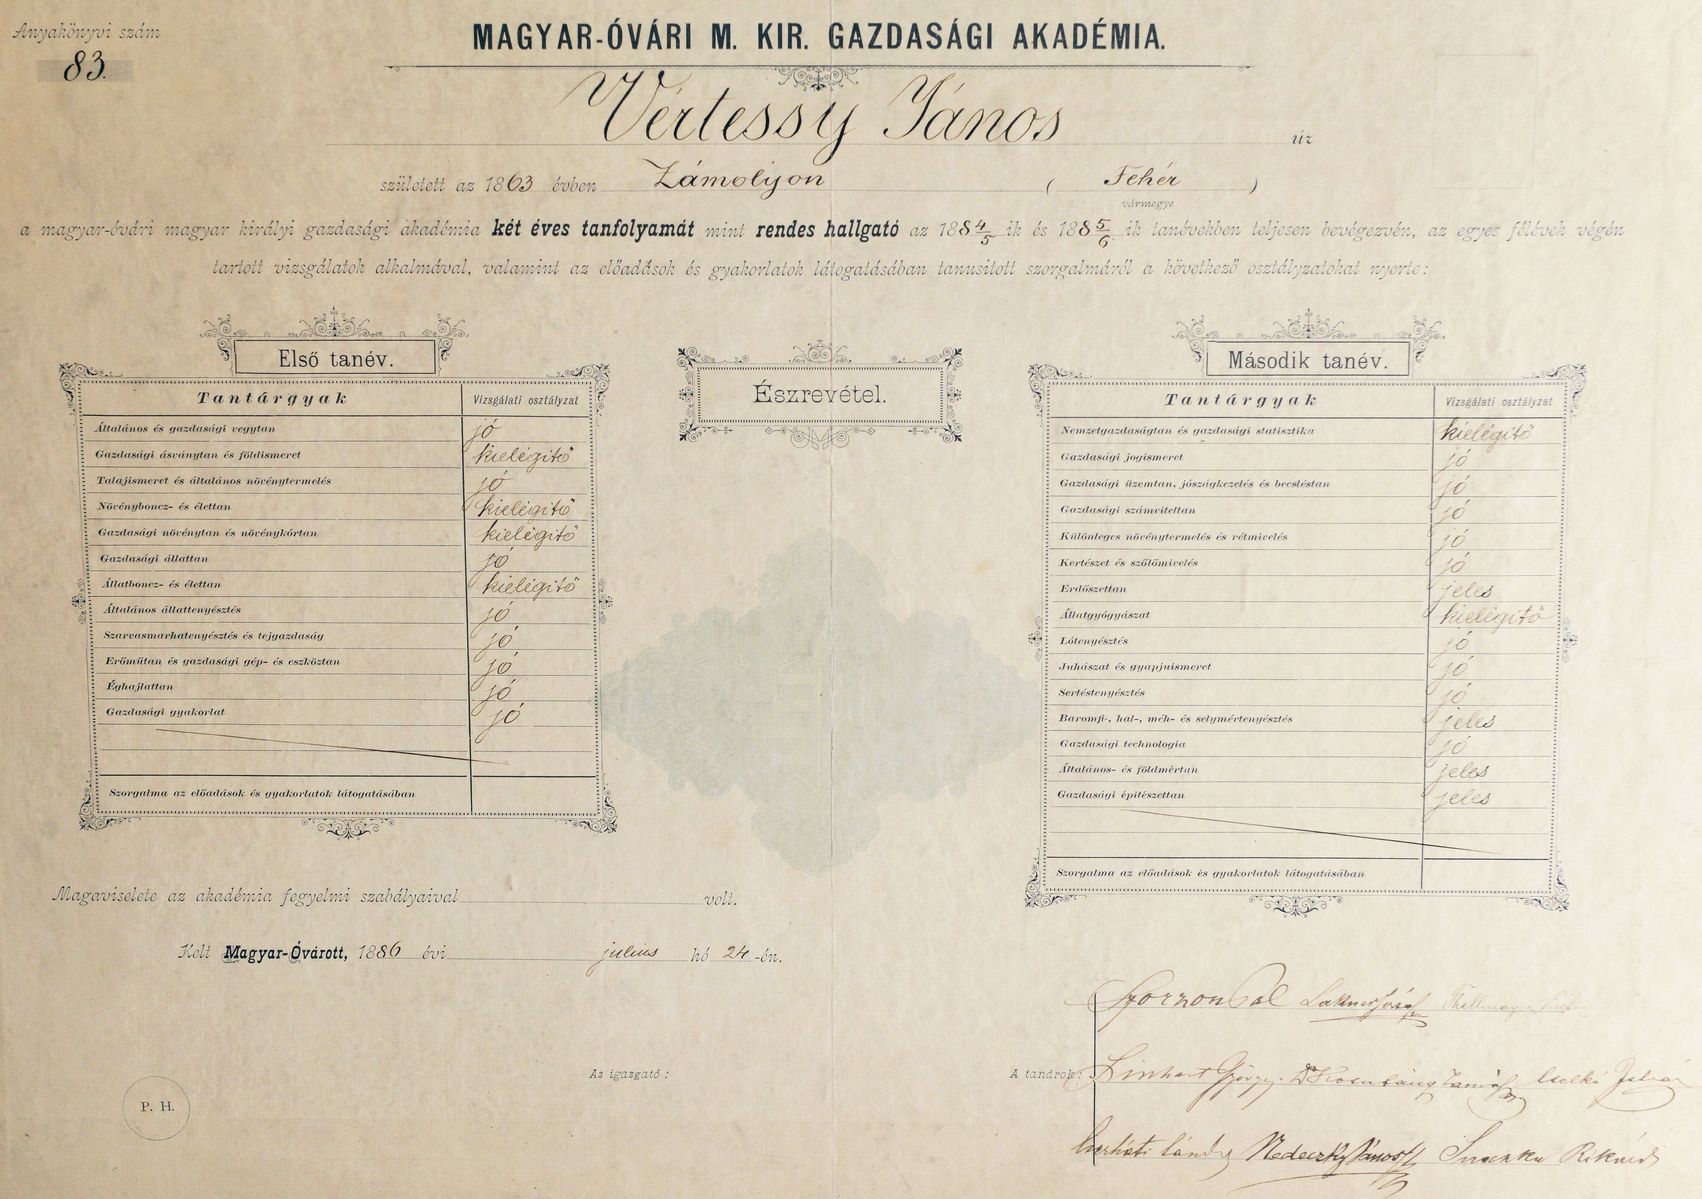 Anyakönyvi szám
83.
MAGYAR-ÓVÁRI M. KIR. GAZDASÁGI AKADÉMIA.
Vértessy János úr
született az 1863 évben Zámolyon ( Fehér )
vármegye
a magyar-óvári magyar királyi gazdasági akadémia két éves tanfolyamát mint rendes hallgató az 1884/5 ik és 1885/6 ik tanévekben teljesen bevégezvén, az egyes félévek végén
tartott vizsgálatok alkalmával, valamint az előadások és gyakorlatok látogatásában tanusitott szorgalmáról a következő osztályzatokat nyerte:
Első tanév.
Tantárgyak Vizsgálati osztályzat
Általános és gazdasági vegytan jó
Gazdasági ásványtan és földismeret kielégitő
Talajismeret és általános növénytermelés jó
Növényboncz- és élettan kielégitő
Gazdasági növénytan és növénykórtan kielégitő
Gazdasági állattan jó
Állatboncz- és élettan kielégitő
Általános állattenyésztés jó
Szarvasmarhatenyésztés és tejgazdaság jó
Erőműtan és gazdasági gép- és eszköztan jó
Éghajlattan jó
Gazdasági gyakorlat jó
Szorgalma az előadások és gyakorlatok látogatásában
Észrevétel.
Második tanév.
Tantárgyak Vizsgálati osztályzat
Nemzetgazdaságtan és gazdasági statisztika kielégitő
Gazdasági jogismeret jó
Gazdasági üzemtan, jószágkezelés és becsléstan jó
Gazdasági számviteltan jó
Különleges növénytermelés és rétmivelés jó
Kertészet és szőlőmivelés jó
Erdőszettan jeles
Állatgyógyászat kielégitő
Lótenyésztés jó
Juhászat és gyapjuismeret jó
Sertéstenyésztés jó
Baromfi-, hal-, méh- és selymértenyésztés jeles
Gazdasági technologia jó
Általános- és földmértan jeles
Gazdasági épitészettan jeles
Szorgalma az előadások és gyakorlatok látogatásában
Magaviselete az akadémia fegyelmi szabályaival volt.
Kelt Magyar-Óvárott, 1886 évi julius hó 24-én.
Az igazgató:
P. H.
A tanárok:
Sporzon Pál Lakner József
Linhart György Dr Kosutány Tamás Cselkó István
Cserháti Sándor Nedeczky János